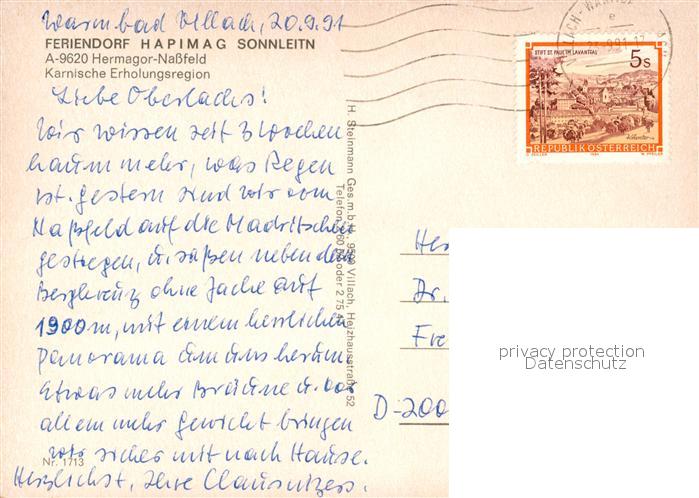 Warmbad Villach, 20.9.91
FERIENDORF HAPIMAG SONNLEITN
A-9620 Hermagor-Naßfeld
Karnische Erholungsregion
Liebe Oberlachs!
Wir wissen seit 3 Wochen
kaum mehr, was Regen
ist. Gestern sind wir vom
Naßfeld auf die Madritschen
gestiegen, u. saßen neben dem
Bergkreuz ohne Jacke auf
1900m, mit einem herrlichen
Panorama um uns herum.
Etwas mehr Bräune u. vor
allem mehr Gewicht bringen
wir sicher mit nach Hause.
Herzlichst, Ihre Clausnitzers.
Nr. 1713
H. Steinmann Ges.m.b.H., Villach, Heizhausstraße 52
Telefon oder 2 75 4
STIFT ST. PAUL IM LAVANTTAL
5 S
REPUBLIK ÖSTERREICH
Her
Dr.
Fre
D-200
privacy protection
Datenschutz